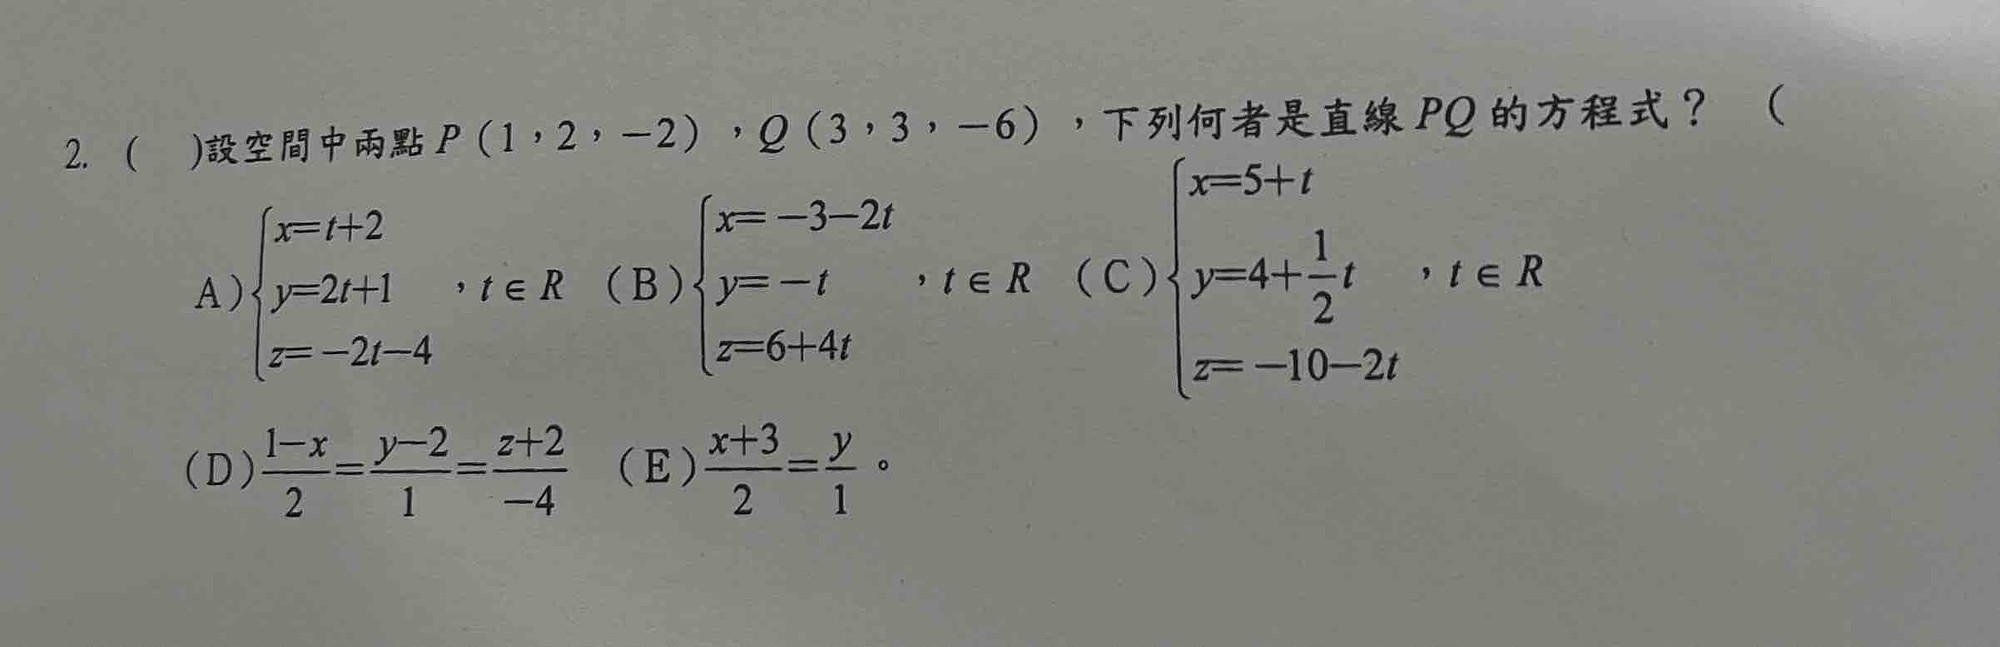 2. (　)設空間中兩點 P（1，2，－2），Q（3，3，－6），下列何者是直線 PQ 的方程式？ （
A) { x=t+2 , y=2t+1 , z=－2t－4 ，t∈R （B) { x=－3－2t , y=－t , z=6+4t ，t∈R （C) { x=5+t , y=4+1/2 t , z=－10－2t ，t∈R
（D) (1－x)/2=(y－2)/1=(z+2)/－4 （E) (x+3)/2=y/1。